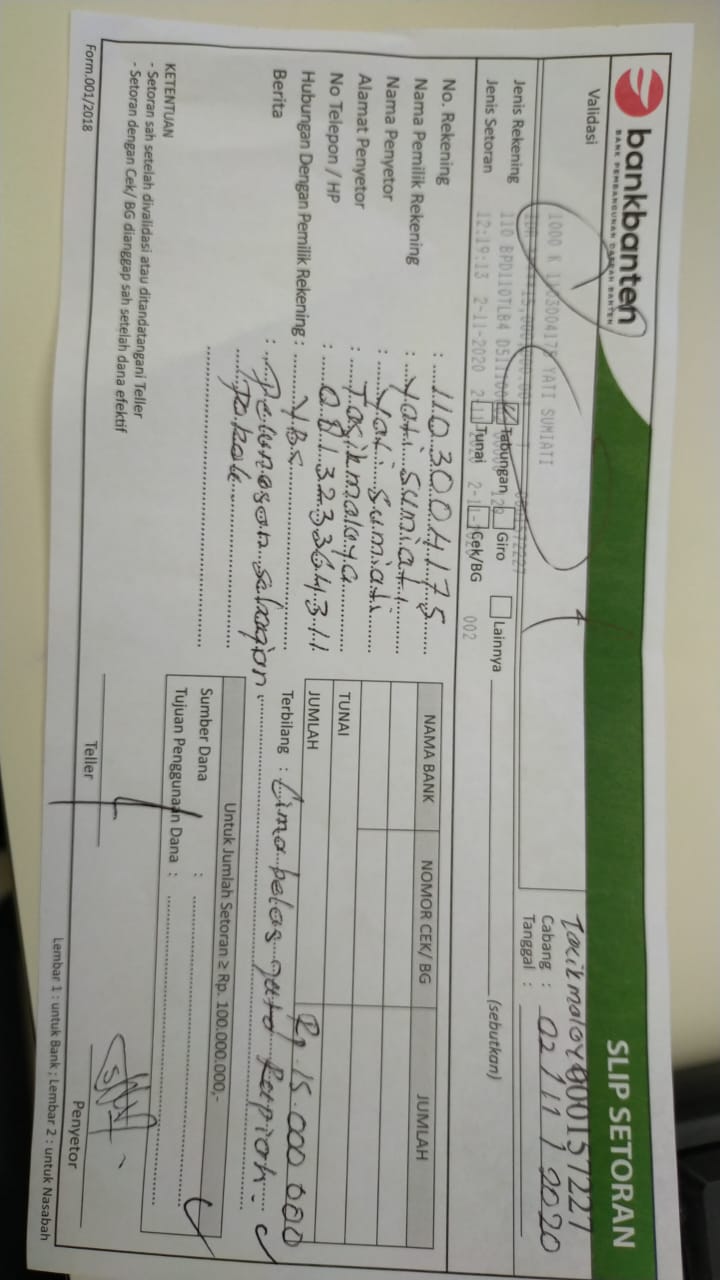 bankbanten
BANK PEMBANGUNAN DAERAH BANTEN
SLIP SETORAN
Validasi
1000 K YATI SUMIATI
110 BPD110TLB4
12:19:13 2-11-2020
002
000157227
Cabang : Tasikmalaya
Tanggal : 02/11/2020
Jenis Rekening Tabungan Giro Lainnya (sebutkan)
Jenis Setoran Tunai Cek/BG
No. Rekening : 1103004175
Nama Pemilik Rekening : Yati Sumiati
Nama Penyetor : Yati Sumiati
Alamat Penyetor : Tasikmalaya
No Telepon / HP : 081323364311
Hubungan Dengan Pemilik Rekening : YBS
Berita : Pelunasan sebagian
pokok
NAMA BANK NOMOR CEK/ BG JUMLAH
TUNAI
JUMLAH Rp. 15.000 000
Terbilang : Lima belas juta Rupiah.
Untuk Jumlah Setoran ≥ Rp. 100.000.000,-
Sumber Dana :
Tujuan Penggunaan Dana :
KETENTUAN
- Setoran sah setelah divalidasi atau ditandatangani Teller
- Setoran dengan Cek/ BG dianggap sah setelah dana efektif
Teller
Penyetor
Form.001/2018
Lembar 1 : untuk Bank ; Lembar 2 : untuk Nasabah